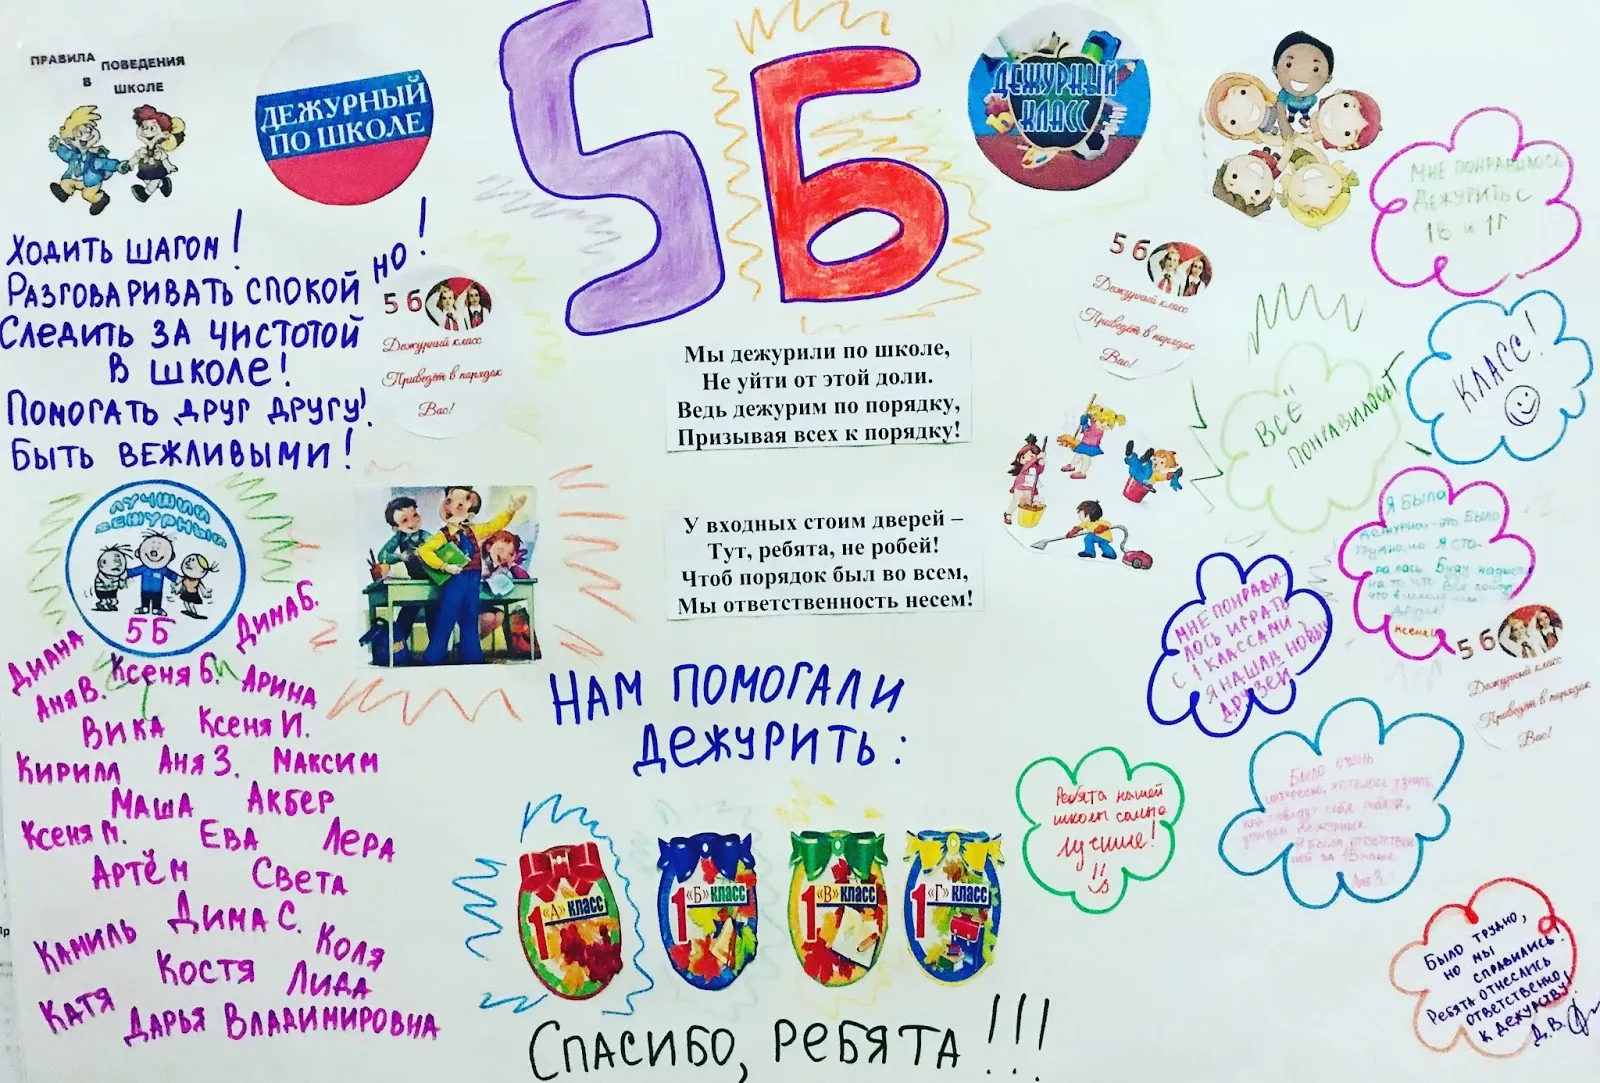 ПРАВИЛА
ПОВЕДЕНИЯ
В
ШКОЛЕ
ДЕЖУРНЫЙ
ПО ШКОЛЕ
5Б
ДЕЖУРНЫЙ
КЛАСС
ХОДИТЬ ШАГОМ!
РАЗГОВАРИВАТЬ СПОКОЙНО!
СЛЕДИТЬ ЗА ЧИСТОТОЙ
В ШКОЛЕ!
ПОМОГАТЬ ДРУГ ДРУГУ!
БЫТЬ ВЕЖЛИВЫМИ!
5 б
Дежурный класс
Приведёт в порядок
Вас!
Мы дежурили по школе,
Не уйти от этой доли.
Ведь дежурим по порядку,
Призывая всех к порядку!
У входных стоим дверей –
Тут, ребята, не робей!
Чтоб порядок был во всем,
Мы ответственность несем!
5 б
Дежурный класс
Приведёт в порядок
Вас!
МНЕ ПОНРАВИЛОСЬ
ДЕЖУРИТЬ С
1В и 1Г
ВСЁ
ПОНРАВИЛОСЬ
КЛАСС!
Я БЫЛА
ЭТО БЫЛО
ТРУДНО, НО Я СТА-
РАЛАСЬ
Ксения
МНЕ ПОНРАВИ-
ЛОСЬ ИГРАТЬ
С 1 КЛАССАМИ
Я НАШЛА НОВЫХ
ДРУЗЕЙ
5 б
Дежурный класс
Приведёт в порядок
Вас!
ЛУЧШИЙ
ДЕЖУРНЫЙ
5Б
ДИАНА
ДИМА Б.
АНЯ В.
КСЕНЯ Б.
АРИНА
ВИКА
КСЕНЯ И.
КИРИЛЛ
АНЯ З.
МАКСИМ
МАША
АКБЕР
КСЕНЯ М.
ЕВА
ЛЕРА
АРТЁМ
СВЕТА
КАМИЛЬ
ДИМА С.
КОЛЯ
КОСТЯ
ЛИДА
КАТЯ
ДАРЬЯ ВЛАДИМИРОВНА
НАМ ПОМОГАЛИ
ДЕЖУРИТЬ:
1 «А» КЛАСС
1 «Б» КЛАСС
1 «В» КЛАСС
1 «Г» КЛАСС
Ребята нашей
школы самые
лучшие!
БЫЛО ОЧЕНЬ
ИНТЕРЕСНО. ХОТЕЛОСЬ УЗНАТЬ,
Аня З.
БЫЛО ТРУДНО,
НО МЫ
СПРАВИЛИСЬ!
РЕБЯТА ОТНЕСЛИСЬ
ОТВЕТСТВЕННО
К ДЕЖУРСТВУ!
Д.В.
СПАСИБО, РЕБЯТА!!!